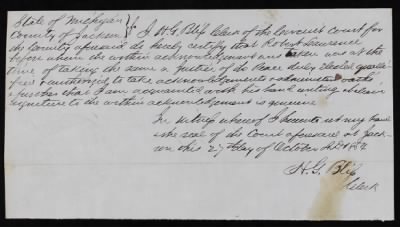 State of Michigan
County of Jackson } ss I H. G. Bliss Clerk of the Circuit Court for
the County aforesaid do hereby certify that Robert Lawrence
before whom the within acknowledgement was taken was at the
time of taking the same a Justice of the Peace duly elected quali
fied & authorized to take acknowledgements & administer oaths
& further that I am acquainted with his hand writing & believe
signature to the within acknowledgement is genuine
In witness whereof I hereunto set my hand
& the seal of the Court aforesaid at Jack
son this 27th day of October AD
H. G. Bliss
Clerk